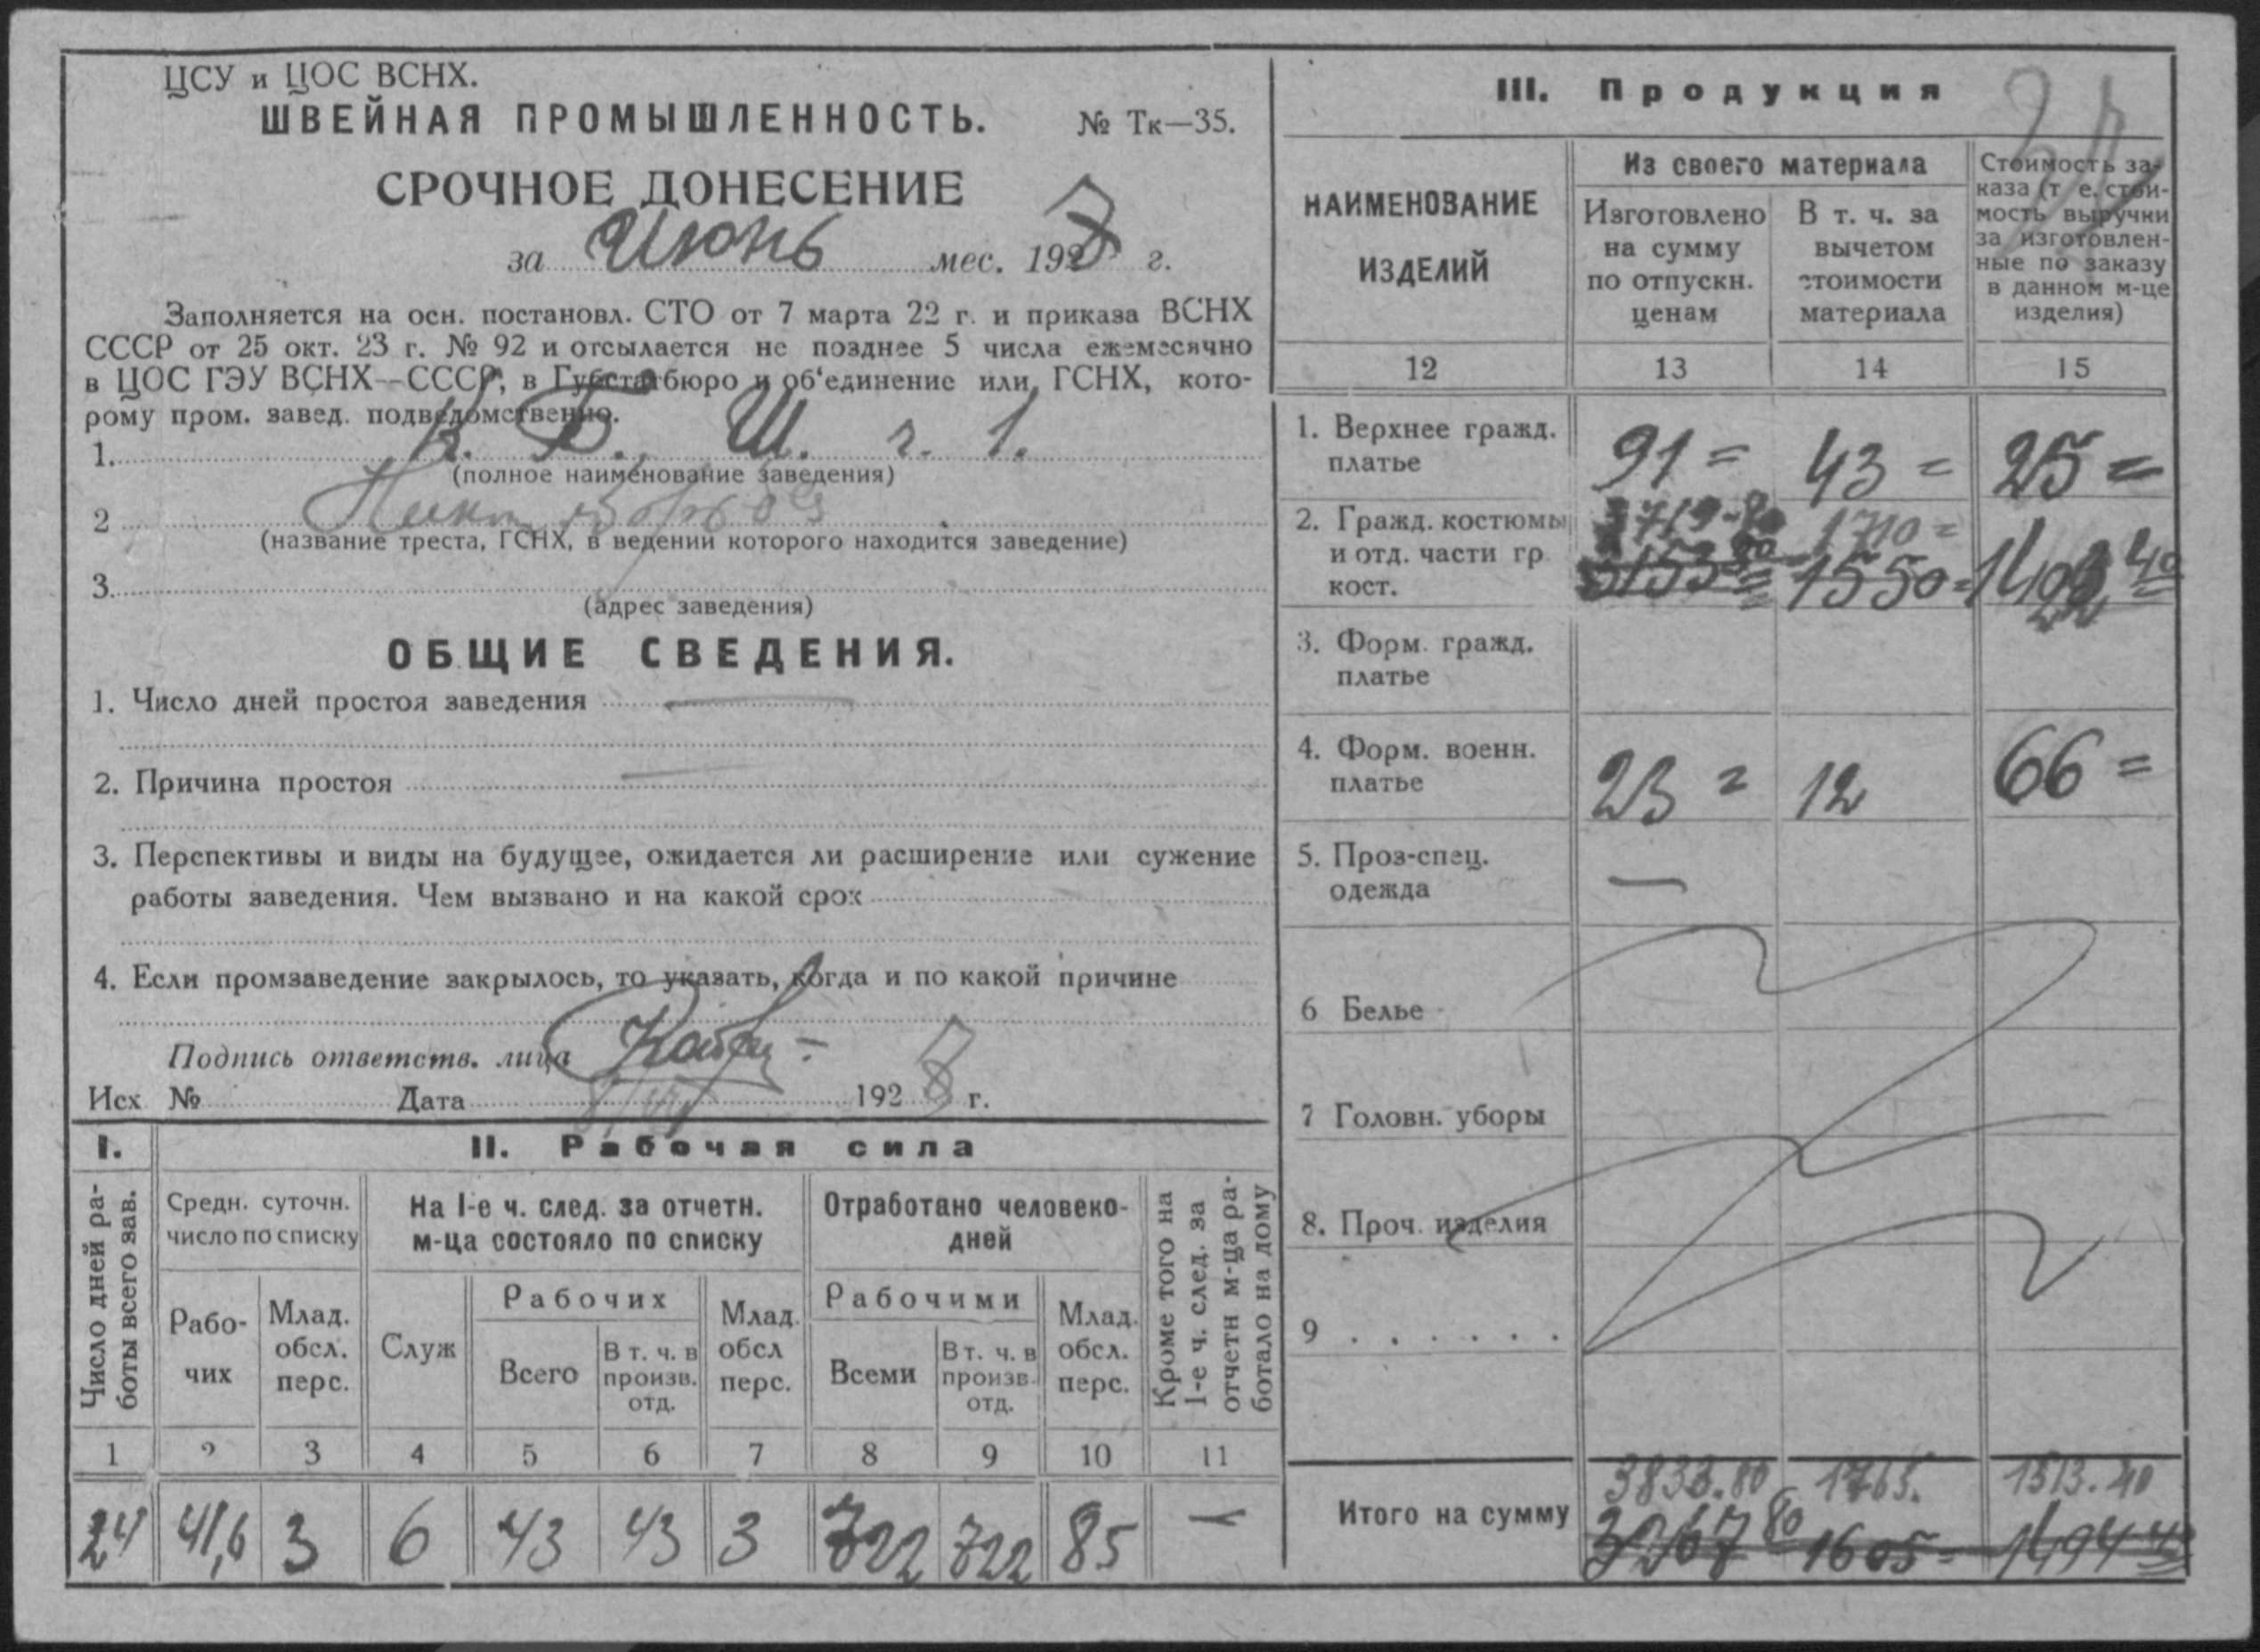 ЦСУ и ЦОС ВСНХ.
ШВЕЙНАЯ ПРОМЫШЛЕННОСТЬ. № Тк—35.
СРОЧНОЕ ДОНЕСЕНИЕ
за Июнь мес. 192 г.
Заполняется на осн. постановл. СТО от 7 марта 22 г. и приказа ВСНХ
СССР от 25 окт. 23 г. № 92 и отсылается не позднее 5 числа ежемесячно
в ЦОС ГЭУ ВСНХ—СССР, в Губстатбюро и об‘единение или ГСНХ, кото-
рому пром. завед. подведомственно.
1. Ш. г. 1.
(полное наименование заведения)
2
(название треста, ГСНХ, в ведении которого находится заведение)
3.
(адрес заведения)
ОБЩИЕ СВЕДЕНИЯ.
1. Число дней простоя заведения —
2. Причина простоя —
3. Перспективы и виды на будущее, ожидается ли расширение или сужение
работы заведения. Чем вызвано и на какой срок
4. Если промзаведение закрылось, то указать, когда и по какой причине
Подпись ответств. лица
Исх № Дата 192 г.
I. II. Рабочая сила
Число дней ра-
боты всего зав.
Средн. суточн.
число по списку
На 1-е ч. след. за отчетн.
м-ца состояло по списку
Отработано человеко-
дней
Кроме того на
1-е ч. след. за
отчетн м-ца ра-
ботало на дому
Рабо-
чих
Млад.
обсл.
перс.
Служ
Рабочих
Всего
В т. ч. в
произв.
отд.
Млад.
обсл
перс.
Рабочими
Всеми
В т. ч. в
произв.
отд.
Млад.
обсл.
перс.
1 2 3 4 5 6 7 8 9 10 11
24 41,6 3 6 43 43 3 722 722 85 —
III. Продукция
НАИМЕНОВАНИЕ
ИЗДЕЛИЙ
Из своего материала
Изготовлено
на сумму
по отпускн.
ценам
В т. ч. за
вычетом
стоимости
материала
Стоимость за-
каза (т е. стои-
мость выручки
за изготовлен-
ные по заказу
в данном м-це
изделия)
12 13 14 15
1. Верхнее гражд.
платье
91= 43= 25=
2. Гражд. костюмы
и отд. части гр
кост.
3719-80 1710=
1550=
3. Форм. гражд.
платье
4. Форм. военн.
платье
23= 12 66=
5. Проз-спец.
одежда
—
6 Белье
7 Головн. уборы
8. Проч. изделия
9 . . . . . .
Итого на сумму
3833.80 1765. 1513.40
3267 80 1605= 1494 40